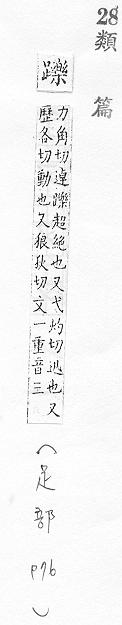 28
類篇
躒
力角切逴躒超絶也又弋灼切迅也又
歷各切動也又狼狄切文一重音三
(足部 P76)